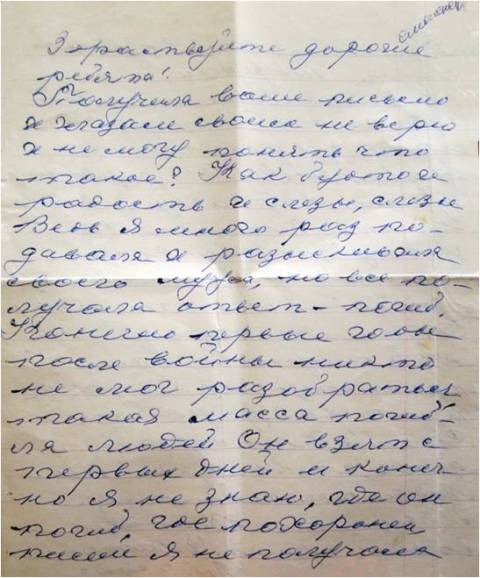 Здраствуйте дорогие
ребята!
Получила ваше письмо
и глазам своим не верю
и не могу понять что
такое? Как будто и
радость и слезы, слезы
Ведь я много раз по-
давала и разыскивала
своего мужа, но все по-
лучала ответ - погиб.
Конечно первые годы
после войны никто
не мог разобраться
такая масса погиб-
ля людей Он взят с
первых дней и конеч
но я не знаю, где он
погиб, где похоронен
писем я не получала